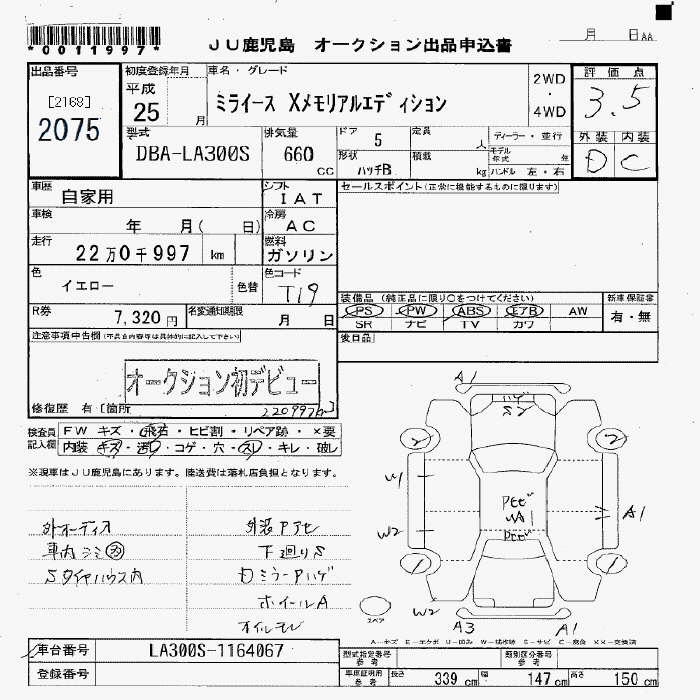 *0011997*
JU鹿児島 オークション出品申込書
月 日 AA
出品番号
[2168]
2075
初度登録年月
平成
25 月
車名・グレード
ミライース Xメモリアルエディション
2WD
・
4WD
評価点
3.5
外装 内装
D C
型式
DBA-LA300S
排気量
660 CC
ドア 5
形状 ハッチB
定員 人
積載 kg
ディーラー・並行
モデル年式 年
ハンドル 左・右
車歴 自家用
シフト IAT
セールスポイント(正常に機能するものに限ります)
車検 年 月( 日)
冷房 AC
走行 22万0千997 km
燃料 ガソリン
色 イエロー 色替
色コード T19
装備品 (純正品に限り○をつけてください)
PS PW ABS エアB AW
SR ナビ TV カワ
新車保証書
有・無
R券 7,320円
名変通知期限 月 日
後日品
注意事項申告欄(不具合内容等は具体的に記入して下さい)
オークション初デビュー
修復歴 有 [箇所 ]
220997km
検査員記入欄
FW キズ・飛石・ヒビ割・リペア跡・×要
内装 キズ・汚レ・コゲ・穴・スレ・キレ・破レ
※現車はJU鹿児島にあります。陸送費は落札店負担となります。
外オーディオ
車内ゴミ
Sタイヤハウス内
外装アアセ
下廻りS
Dミラーアハゲ
ホイールA
オイルモレ
A1
ハゲ
S2
2 2
W1
W2
A1
1 1
W2
A3
A1
スペア
車台番号 LA300S-1164067
登録番号
型式指定番号 参考
類別区分番号 参考
車庫証明用 参考
長さ 339 cm 幅 147 cm 高さ 150 cm